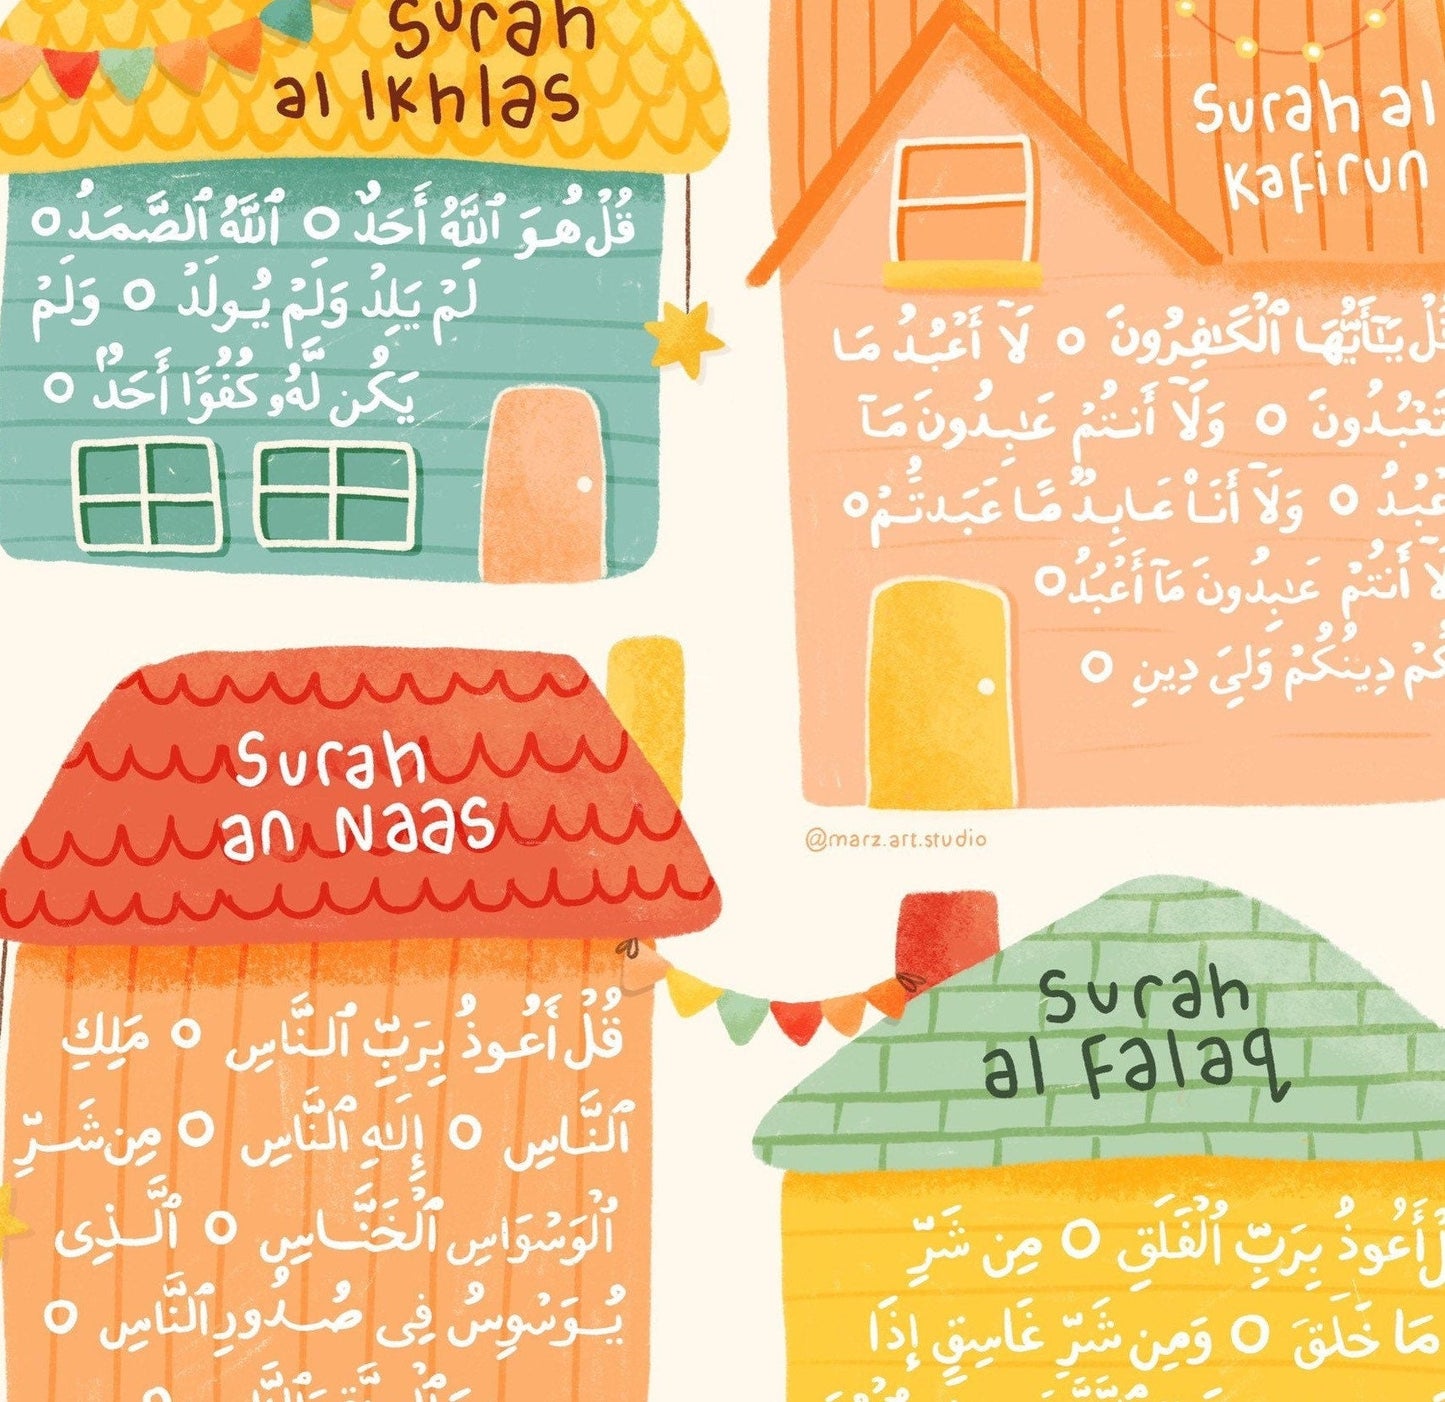 Surah
al Ikhlas
قُلْ هُوَ ٱللَّهُ أَحَدٌ ○ ٱللَّهُ ٱلصَّمَدُ ○
لَمْ يَلِدْ وَلَمْ يُولَدْ ○ وَلَمْ
يَكُن لَّهُۥ كُفُوًا أَحَدٌۢ ○
Surah al
Kafirun
قُلْ يَـٰٓأَيُّهَا ٱلْكَـٰفِرُونَ ○ لَآ أَعْبُدُ مَا
تَعْبُدُونَ ○ وَلَآ أَنتُمْ عَـٰبِدُونَ مَآ
أَعْبُدُ ○ وَلَآ أَنَا۠ عَابِدٌ مَّا عَبَدتُّمْ ○
وَلَآ أَنتُمْ عَـٰبِدُونَ مَآ أَعْبُدُ ○
لَكُمْ دِينُكُمْ وَلِىَ دِينِ ○
@marz.art.studio
Surah
an Naas
قُلْ أَعُوذُ بِرَبِّ ٱلنَّاسِ ○ مَلِكِ
ٱلنَّاسِ ○ إِلَـٰهِ ٱلنَّاسِ ○ مِن شَرِّ
ٱلْوَسْوَاسِ ٱلْخَنَّاسِ ○ ٱلَّذِى
يُوَسْوِسُ فِى صُدُورِ ٱلنَّاسِ ○
Surah
al Falaq
أَعُوذُ بِرَبِّ ٱلْفَلَقِ ○ مِن شَرِّ
مَا خَلَقَ ○ وَمِن شَرِّ غَاسِقٍ إِذَا